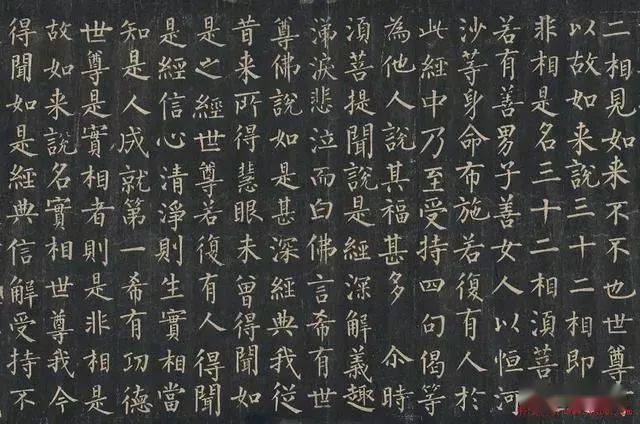 二相見如来不不也世尊
以故如来說三十二相即
非相是名三十二相須菩
若有善男子善女人以恒河
沙等身命布施若復有人於
此經中乃至受持四句偈等
為他人說其福甚多 尒時
須菩提聞說是經深解義趣
涕淚悲泣而白佛言希有世
尊佛說如是甚深經典我從
昔来所得慧眼未曾得聞如
是之經世尊若復有人得聞
是經信心清淨則生實相當
知是人成就第一希有功德
世尊是實相者則是非相是
故如来說名實相世尊我今
得聞如是經典信解受持不